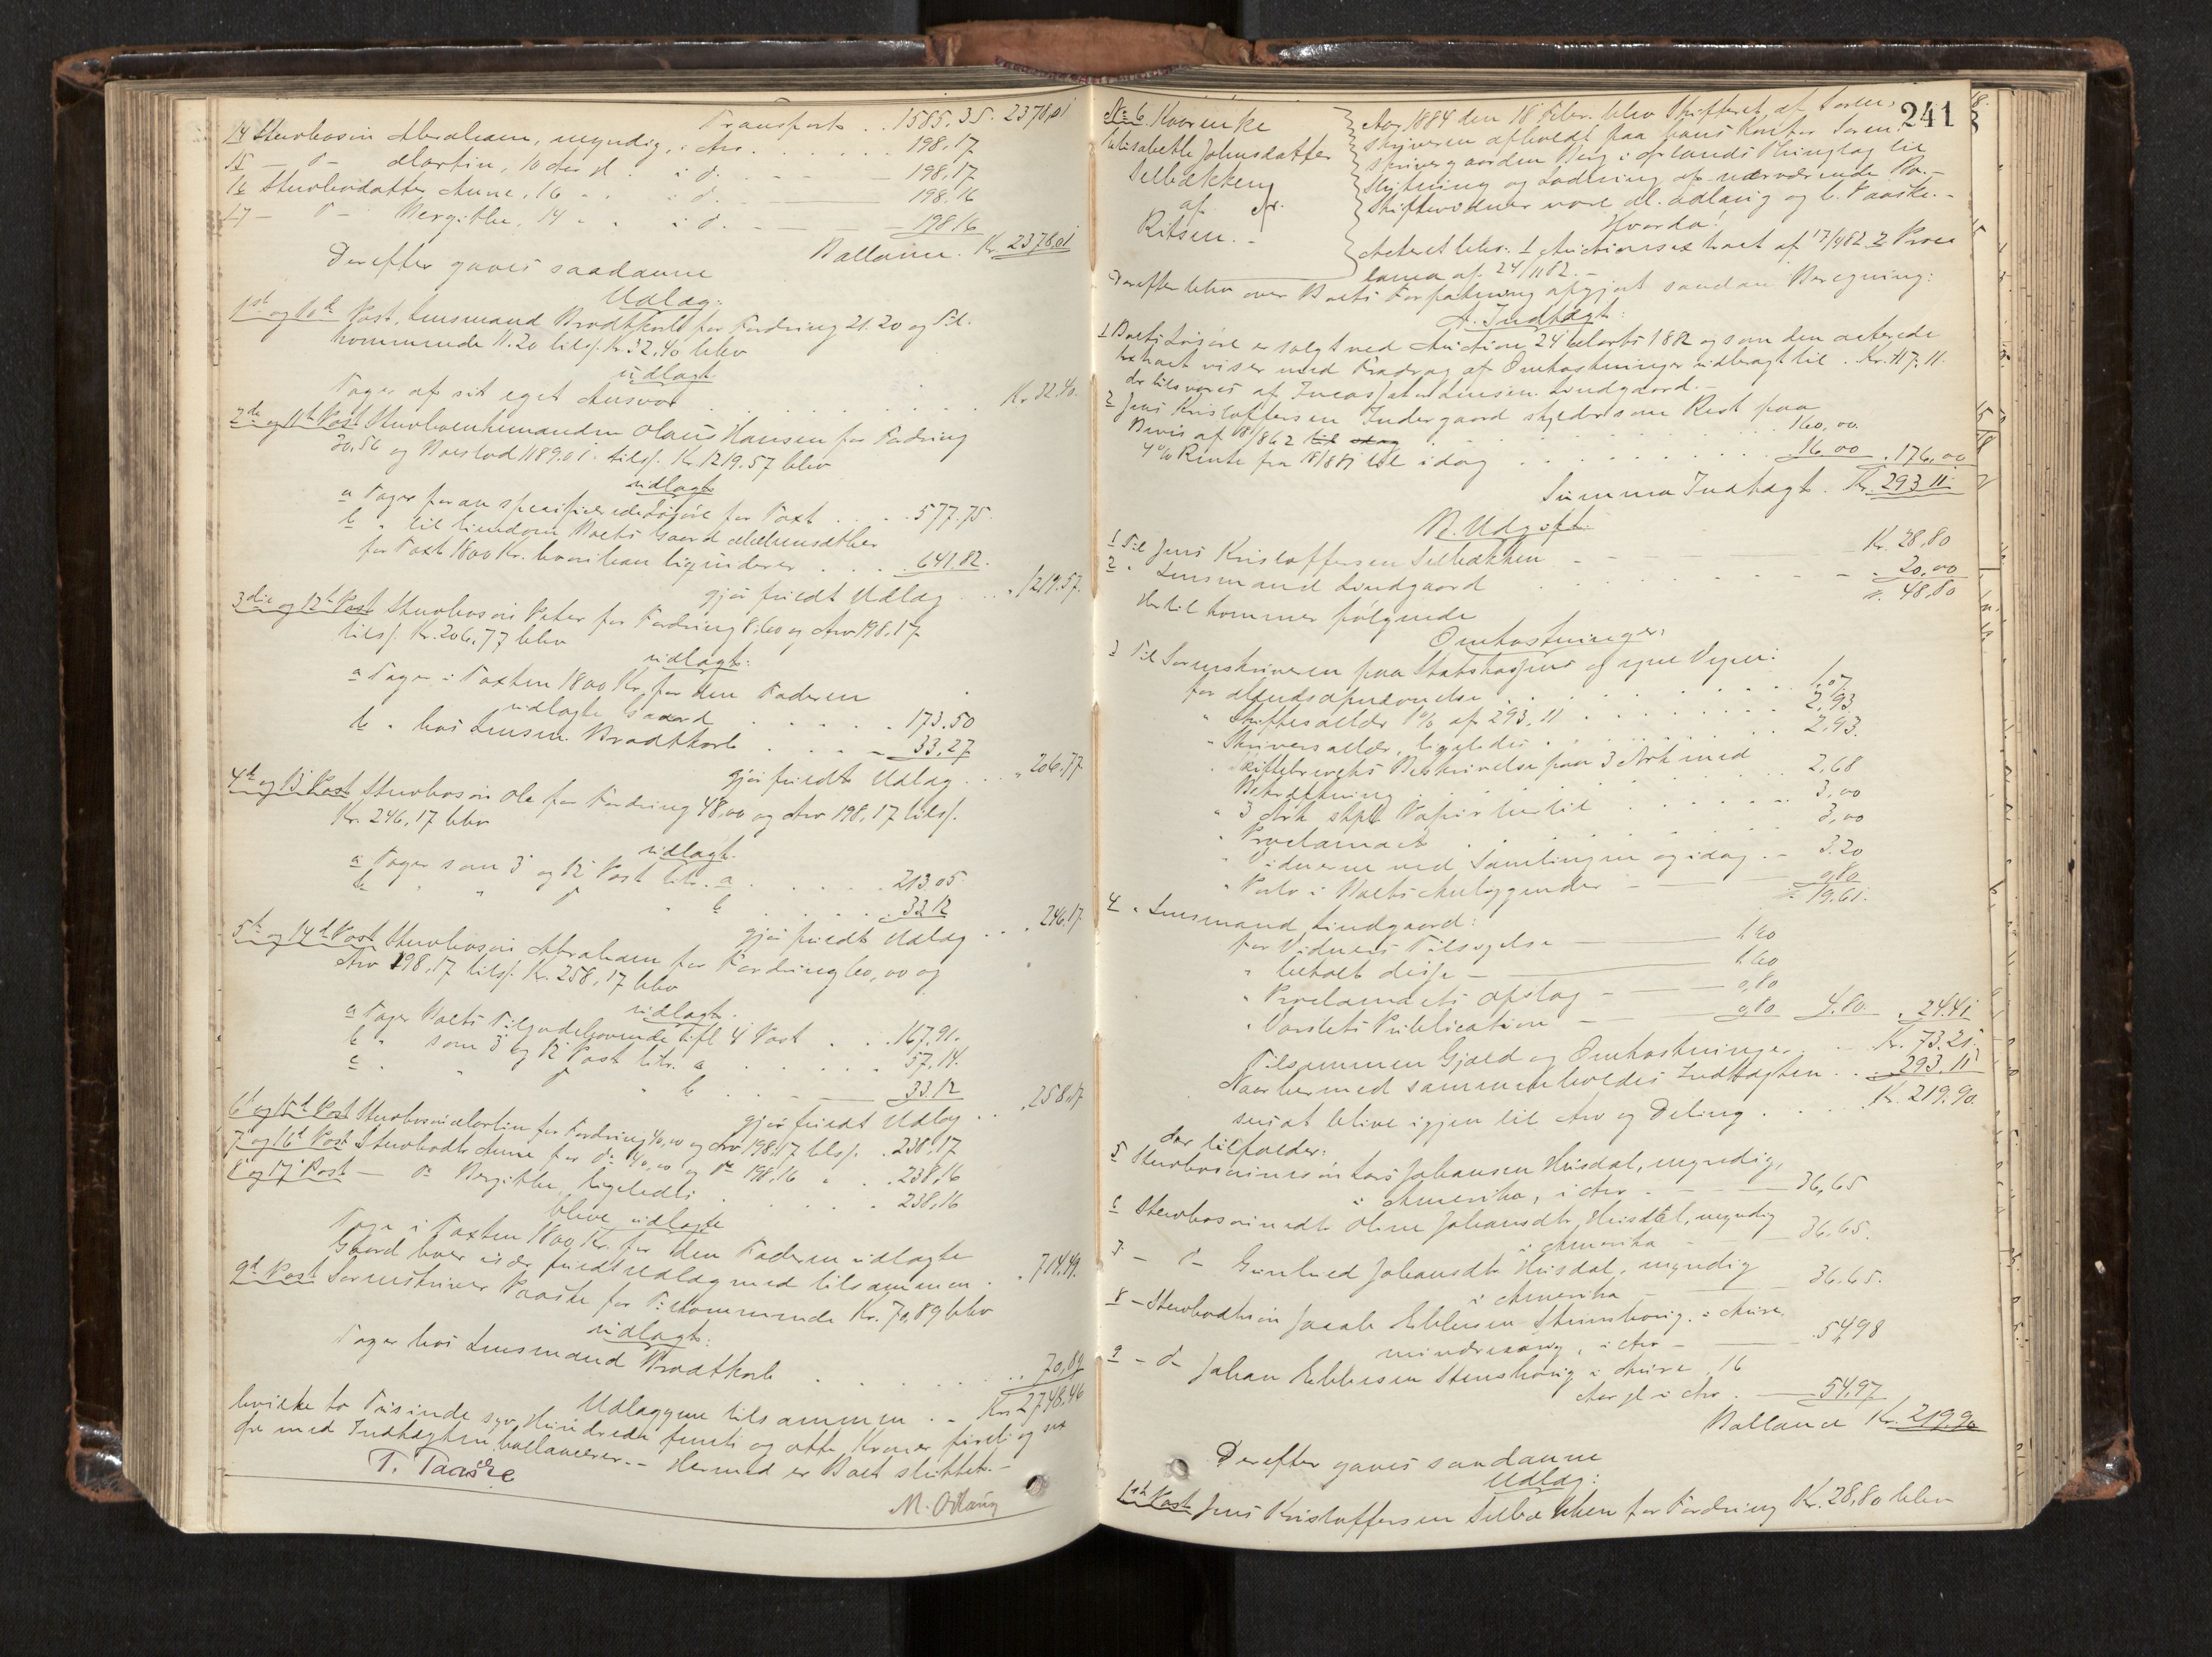 Transport . . 1585.35. 2378,01
14 Stervbosøn Abraham, myndig, i Arv . . . . . . 198,17
15 — d— Martin, 10 Aar gl. i d. — — — 198,17
16 Stervbodatter Anne, 16 " . i d. ———— 198,16
17 — d— Bergithe, 14 " . i d. — — 198,16
Ballance. Kr. 2378,01
Derefter gaves saadanne
Udlæg:
1st og 10de Post, Lensmand Brodtkorb for Fordring 21.20 og Til-
kommende 11.20 tils. Kr. 32.40 blev
udlagt
Tager af sit eget Ansvar . . . . . . . . Kr. 32.40.
2de og 11te Post Stervboenkemanden Olaus Hansen for Fordring
30,56 og Boeslod 1189.01. tils. Kr. 1219.57 blev
udlagt
a Tager foran specificerede Løsøre for Taxt . . . 577.75.
b " til Eiendom Boets Gaard
for Taxt 1800 Kr. hvori han liquiderer . . . . 641.82.
gjør fuldt Udlæg . . . " 1219.57.
3die og 12te Post Stervbosøn Peter for Fordring 8,60 og Arv 198.17
tils. Kr. 206.77 blev
udlagt:
a Tager i Taxten 1800 Kr. for den Faderen
udlagte Gaard . . . . . . 173.50
b " hos Lensm. Brodtkorb . . . . 33,27
gjør fuldt Udlæg . . . " 206.77
4de og 13de Post Stervbosøn Ole for Fordring 48,00 og Arv 198.17 tils.
Kr. 246.17 blev
udlagt.
a Tager som 3 og 12 Post litr. a . . . . . . 213.05
b " " d " b . . . . . . 33.12
gjør fuldt Udlæg . . . 246.17
5te og 14de Post Stervbosøn Abraham for Fordring 60,00 og
Arv 198,17 tils. Kr. 258,17 blev
udlagt.
a Tager Boets Tilgodehavende 4 Post . . . 167.91.
b " som 3 og 12 Post litr. a . . . . . 57.14.
c " " d " b . . —— 33.12
gjør fuldt Udlæg . . . 258.17
6te og 15de Post Stervbosøn Martin for Fordring 40,00 og Arv 198,17 tils. . 238,17
7de og 16de Post Stervbodtr Anne for do 40,00 og do 198,16 " . . 238,16
8de og 17de Post — d— Bergithe ligeledes . . . . . 238,16
bleve udlagte
Tage i Taxten 1800 Kr. for den Faderen udlagte
Gaard hver især fuldt Udlæg med tilsammen . . 714.49.
9de Post Sorenskriver Paaske for Tilkommende Kr. 70,89 blev
udlagt:
Tager hos Lensmand Brodtkorb . . . . . . . . 70,89
Udlæggene tilsammen . - Kr. 2748.46
hvilke to Tusinde syv Hundrede femti og otte Kroner firti og sex
Øre med Indtægten ballancerer. - Hermed er Boet sluttet. -
T. Paaske
M. Odlaug
241
No 6. Kovrenke
Elisabeth Johnsdatter
Selbækken
af
Ritsen. -
Aar 1884 den 18 Febr. blev Skifteret af Soren-
skriveren afholdt paa hans Kontor Soren-
skrivergaarden Berg i Ørlands Thinglag til
Slutning og Lodning af nærværende Bo. -
Skiftevidner vare M. Odlaug og C. Paaske. -
Hvorda!
Acteret blev: 1 Auctionsextract af 17/4 82 2 Proc-
lama af 24/11 82. -
Derefter blev over Boets Forfatning opgjort saadan Beregning:
A. Indtægt:
1 Boets Løsøre er solgt ved Auction 24 Marts 1882 og som den acterede
Extract viser med Fradrag af Omkostninger udbragt til . Kr. 117.11.
der tilsvares af Lensm. Lindgaard. -
2 Jens Kristoffersen Indergaard skylder som Rest paa
Bevis af 18/1862 til idag . . . . . . . . . . 160,00.
4% Rente fra 18/8 81 til idag . . . . . . . . . 16,00 . 176,00
Summa Indtægt. Kr. 293.11.
B. Udgift.
1 Til Jens Kristoffersen Selbækken - ——— Kr. 28,80
2 " Lensmand Lindgaard . . . . . — — . 20,00
Kr. 48,80
Hertil kommer følgende
Omkostninger:
3 Til Sorenskriveren paa Statskassens og egne Vegne:
for Afludsopnævnelse . . . . . . . . . . . 1.07
" Skiftesalær 1% af 293,11 . . . . . . . . 2,93
" Skriversalær, ligeledes . . . . . . . . . 2,93.
" Skiftebrevets Beskrivelse paa 3 Ark med
Bekræftning . . . . . . . . . . 2,68
" 3 Ark stpl Papir hertil . . . . . . . 3,00
" Proclamaet . . . . . . . . . 3,00
" Vidnerne ved Samlingen og idag . — 3.20
" Porto i Boets Anliggender — ——— 0,80
= 19.61.
4 " Lensmand Lindgaard:
for Vidners Tilsigelse ———— 1,60
" betalt disse — ———— 1,60
" Proclamaets Opslag — ——— 0,80
" Varslets Publication — —— 0,80 4.80 . 24.41
Tilsammen Gjæld og Omkostninger . — Kr. 73.21.
Naar hermed sammenholdes Indtægten . . . 293.11
sees at blive igjen til Arv og Deling . . . . Kr. 219.90
der tilfalder:
5 Stervbosønnesøn Lars Johansen Husdal, myndig,
i Amerika, i Arv . — ——— 36,65
6 Stervbosønnedtr Oline Johansdtr Husdal, myndig
i Amerika — ——— 36.65.
7 — d— Gunhild Johansdtr Husdal, myndig
i Amerika — ——— 36.65.
8 — Stervbodtrsøn Jacob Ellevsen Stenshøug i Aure
mindreaarig, i Arv — ——— 54,98
9 — d— Johan Ellevsen Stenshøug i Aure, 16
Aar gl i Arv . ——— 54,97
Ballance Kr. 219.90
Derefter gaves saadanne
Udlæg:
1ste Post Jens Kristoffersen Selbækken for Fordring Kr. 28,80 blev